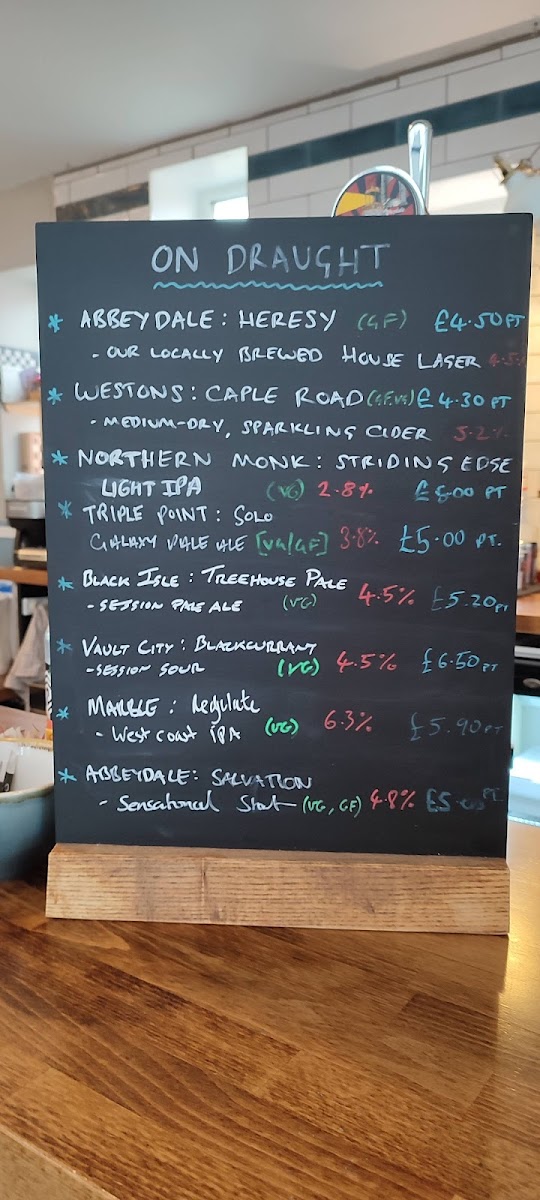 ON DRAUGHT
* ABBEYDALE: HERESY (GF) £4.50 PT
- OUR LOCALLY BREWED HOUSE LAGER
* WESTONS: CAPLE ROAD £4.30 PT
- MEDIUM-DRY, SPARKLING CIDER 5.2%
* NORTHERN MONK: STRIDING EDGE
LIGHT IPA (VG) 2.8% PT
* TRIPLE POINT: SOLO
GALAXY PALE ALE [VG/GF] 3.8% £5.00 PT.
* BLACK ISLE: TREEHOUSE PALE
- SESSION PALE ALE (VG) 4.5% £5.20 PT
* VAULT CITY: BLACKCURRANT
- SESSION SOUR (VG) 4.5% £6.50 PT
* MARBLE: Regulate
- West coast IPA (VG) 6.3% £5.90 PT
* ABBEYDALE: SALVATION
- Sensational Stout (VG, GF) 4.8% PT